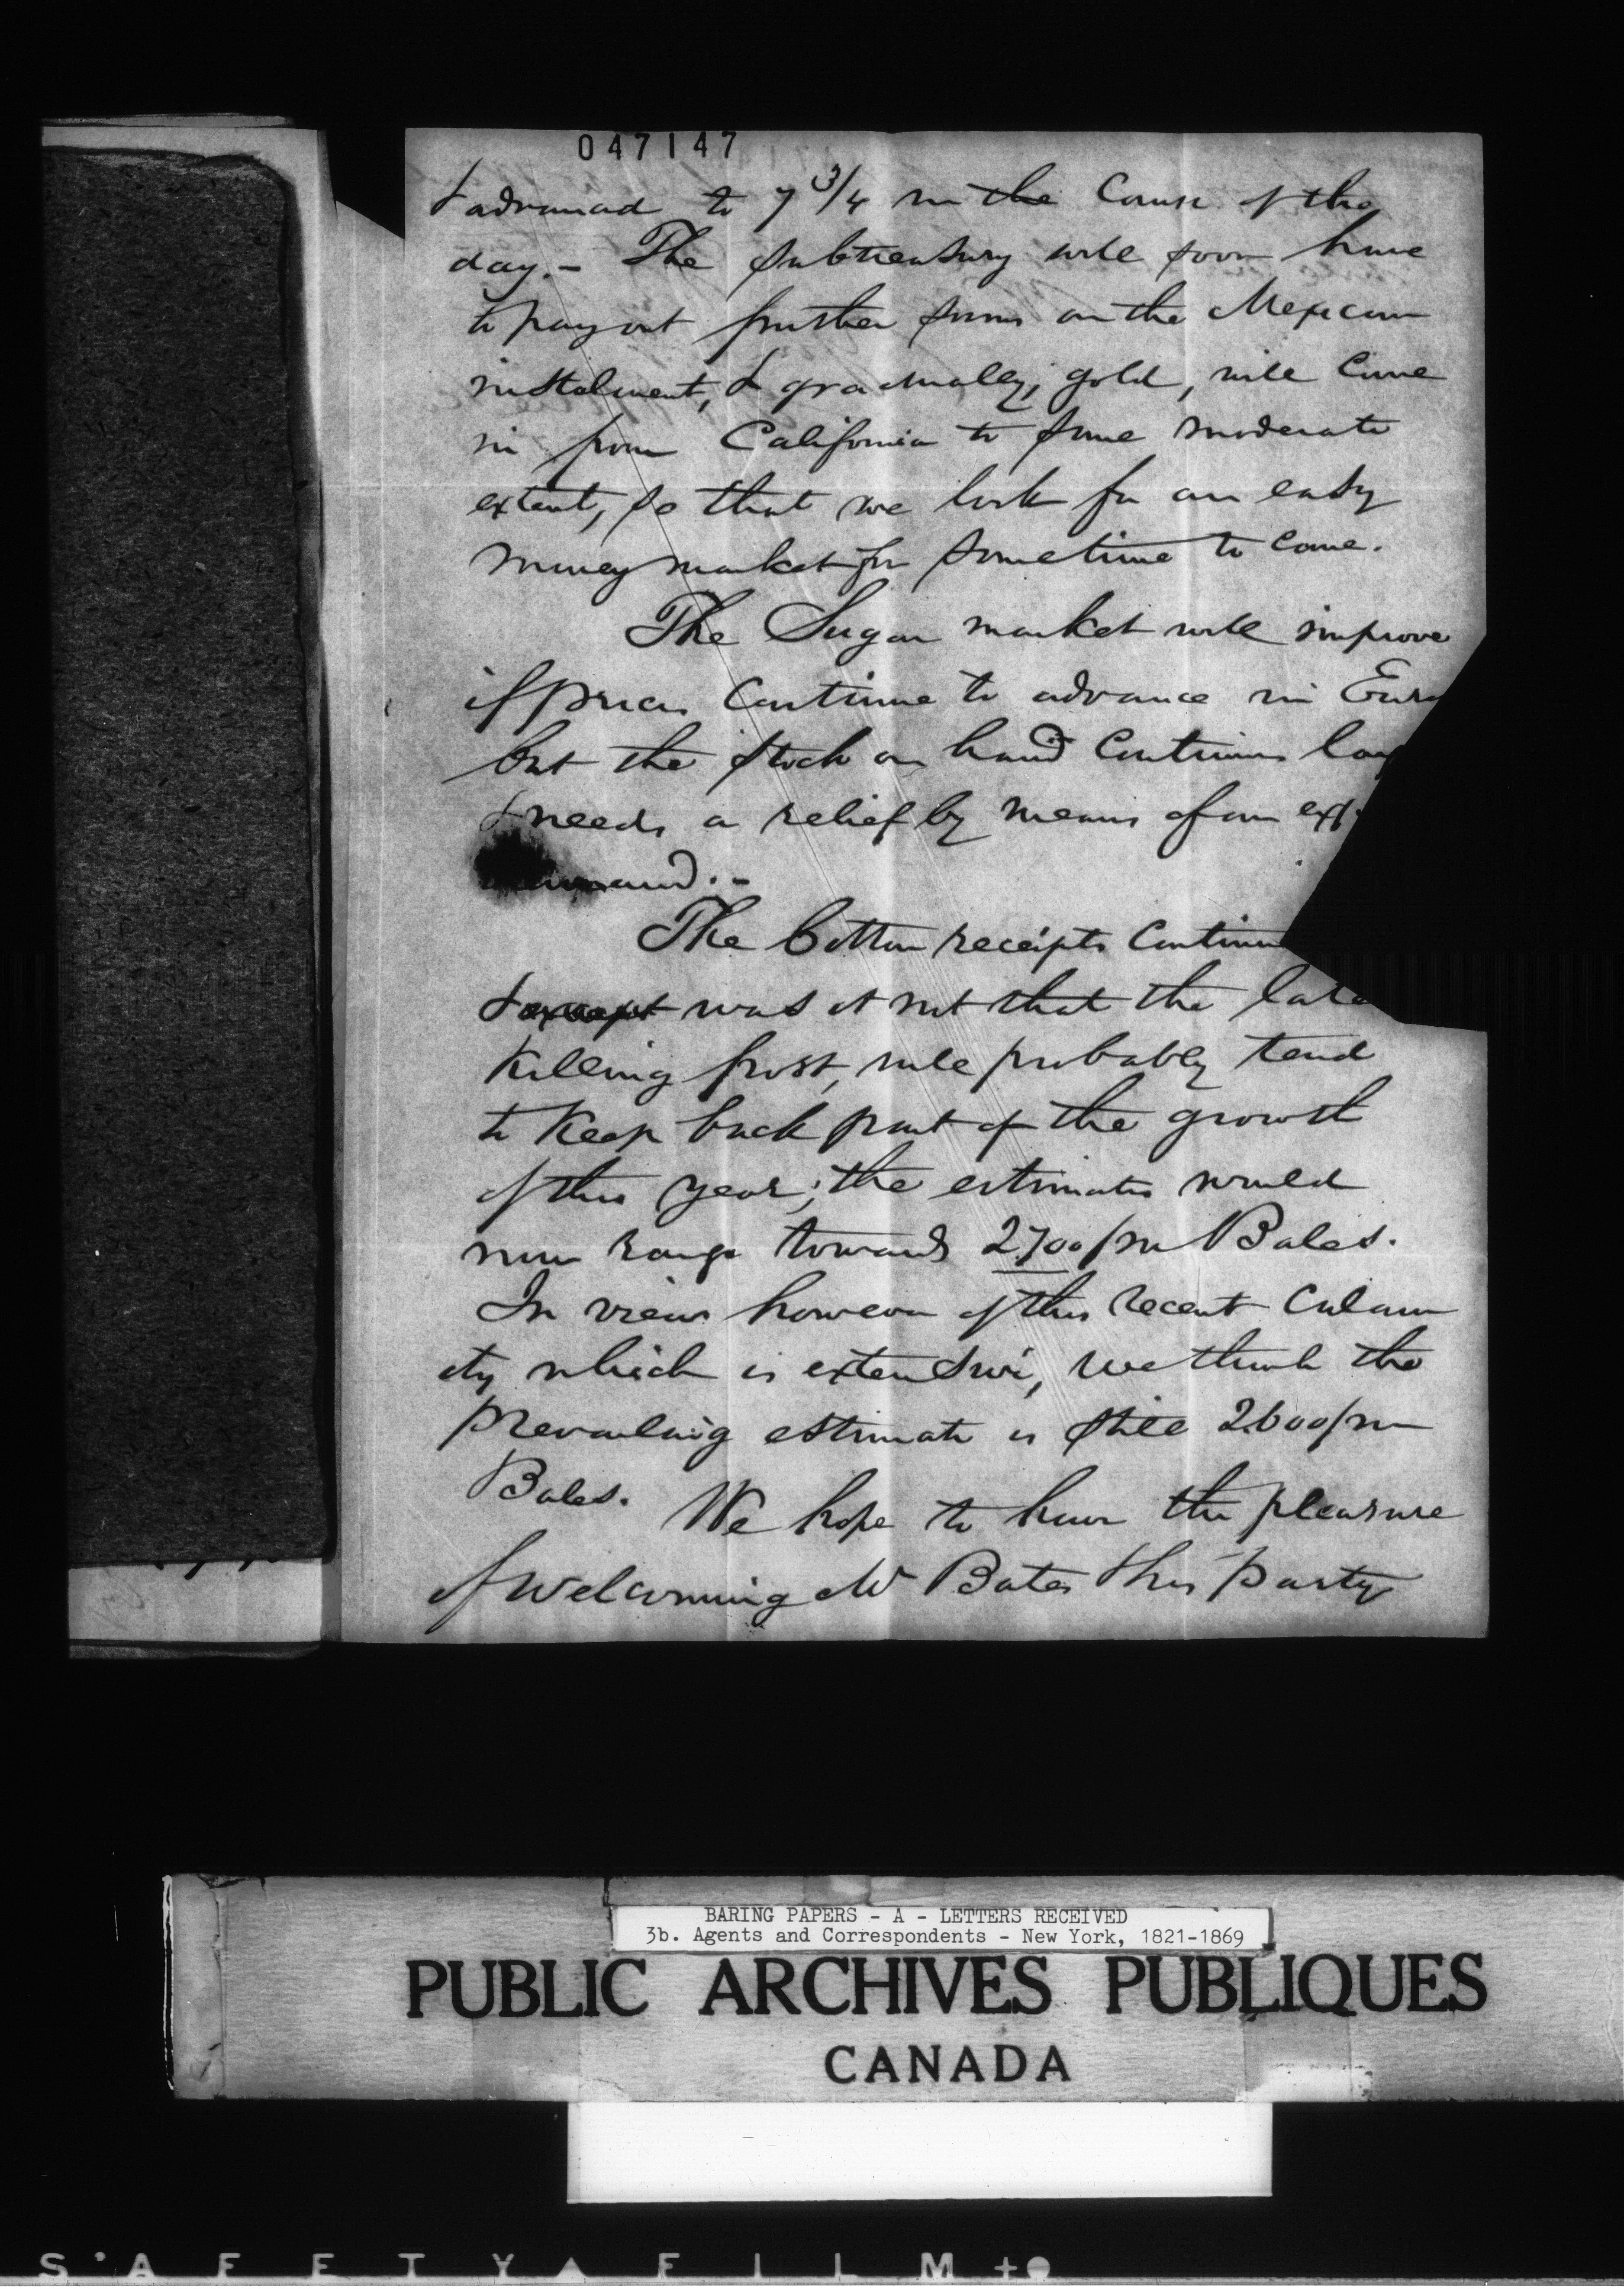 047147
& advanced to 7 3/4 in the Course of the
day. - The subtreasury will soon have
to pay out further sums on the Mexican
instalment, & gradually, gold, will Come
in from California to some moderate
extent, so that we look for an easy
money market for sometime to come.
The Sugar market will improve
if prices Continue to advance in Euro
but the stock on hand Continues
& needs a relief by means of an exp
demand. -
The Cotton receipts Continue
& except was it not that the late
Killing frost, will probably tend
to Keep back part of the growth
of this year; the estimates would
now range towards 2700/m Bales.
In view however of this recent Calam
ity which is extensive, we think the
prevailing estimate is still 2600/m
Bales. We hope to have the pleasure
of welcoming Mr Bates & his party
BARING PAPERS - A - LETTERS RECEIVED
3b. Agents and Correspondents - New York, 1821-1869
PUBLIC ARCHIVES PUBLIQUES
CANADA
S'AFETY FILM